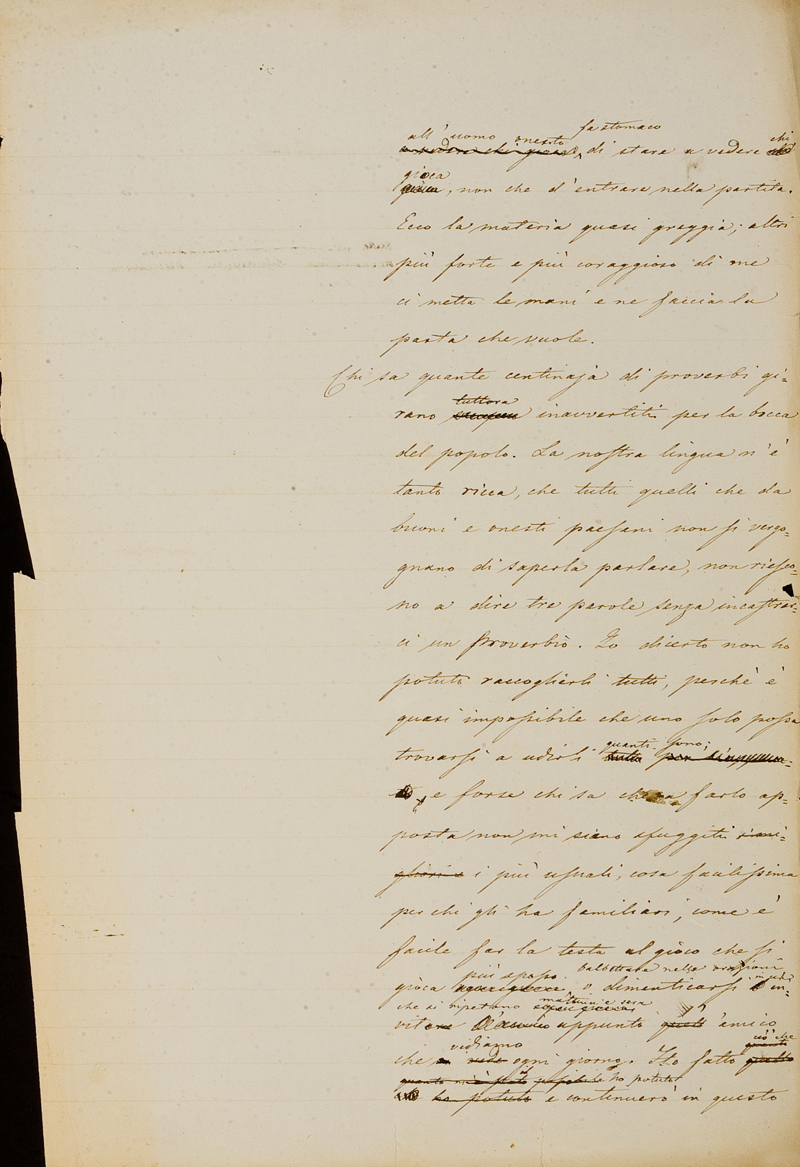 all'uomo onesto fa stomaco
di stare a vedere chi
gioca, non che d'entrare nella partita.
Ecco la materia quasi greggia; altri
più forte e più coraggioso di me
ci metta le mani e ne faccia la
pasta che vuole.
Chi sa quante centinaja di proverbi gi-
tuttora
rano inavvertiti per la bocca
del popolo. La nostra lingua n'è
tanto ricca, che tutti quelli che da
buoni e onesti paesani non si vergo-
gnano di saperla parlare, non riesco-
no a dire tre parole senza incastrar-
ci un proverbio. Io dicerto non ho
potuto raccoglierli tutti, perchè è
quasi impossibile che uno solo possa
quanti sono;
trovarsi a udirli tutti per
e forse chi sa che a farlo ap-
posta non mi siano sfuggiti i mi-
gliori e i più usuali, cosa facilissima
per chi gli ha familiari, come è
facile far la testa al gioco che si
più spesso balbettare nelle orazioni
gioca o dimenticarsi d'in-
che si ripetono mattina e sera
vitare appunto l'amico
vediamo ciò che
che si vede ogni giorno. Ho fatto quello
quanto m'è stato possibile ho potuto
ho potuto e continuerò in questo